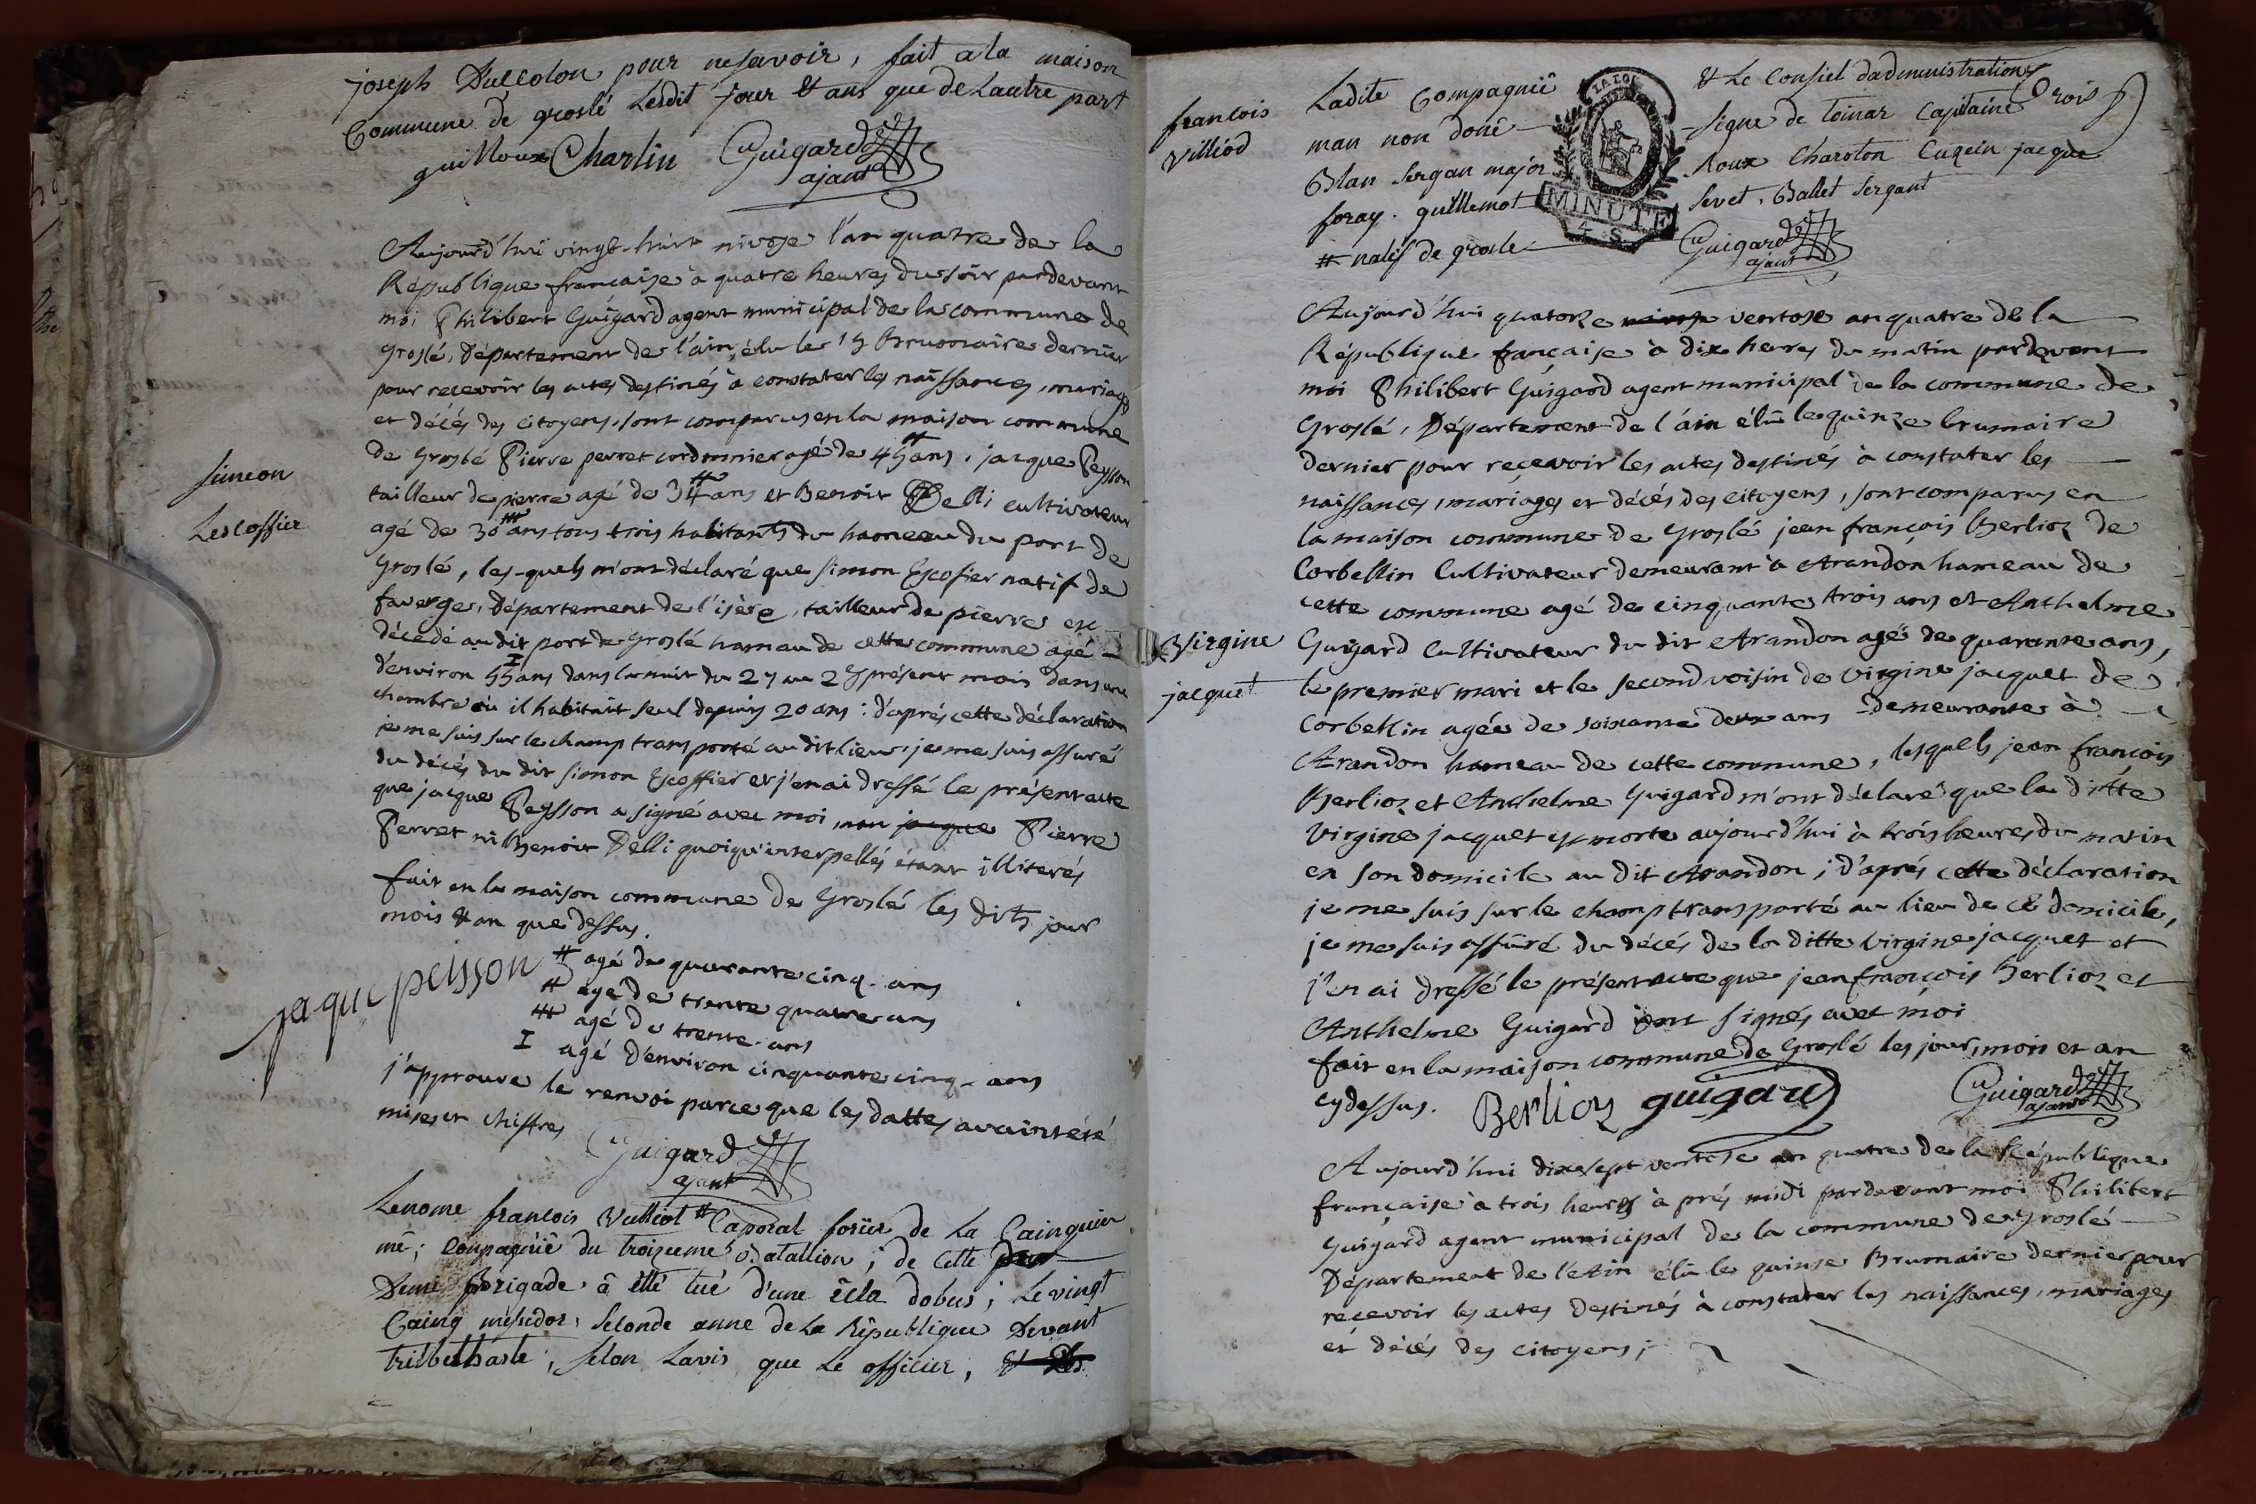 joseph Duccolon pour ne savoir, fait a la maison
Commune de groslé Lesdit jour & ans que de Lautre part
guilloux Charlin Guigard
ajant
Aujourd'hui vingt-huit nivose l'an quatre de la
République francaise à quatre heures du soir pardevant
moi Philibert Guigard agent municipal de la commune de
Groslé, Département de l'ain, élu le 15 Brumaire dernier
pour recevoir les actes destinés à constater les naissances, mariages
et décés des citoyens, sont comparus en la maison commune
de Groslé Pierre perret cordonnier agé de 45 ans, jacque Peysson
tailleur de pierre agé de 34 ans et Benoit Delli cultivateur
agé de 30 ans tous trois habitants du hameau du port de
Groslé, les-quels m'ont déclaré que Simon Escofier natif de
faverge, Département de l'isère, tailleur de pierre est
décédé au dit port de Groslé hameau de cette commune agé
d'environ 55 ans dans la nuit du 27 au 28 présent mois dans une
chambre où il habitait seul depuis 20 ans : d'aprés cette déclaration
je me suis sur le champ transporté au dit lieu, je me suis assuré
du décés du dit Simon Escoffier et j'en ai dressé le présent acte
que jacque Peysson a signé avec moi, non jacque Pierre
Perret ni Benoit Delli quoiqu'interpellés étant illiterés
fait en la maison commune de Groslé les dits jour
mois & an que dessus.
Simeon
Lescoffier
jaque peisson
# agé de quarante cinq-ans
# agé de trente quatre ans
# agé de trente-ans
I agé d'environ cinquante cinq-ans
j'approuve le renvoi parce que les dattes avaint été
mises en chiffres
Guigard
ajant
Lenome francois Valliot # Caporal forïer de La Cainquier
mê; Compagniê du troizieme Batallion; de Cette
Demi Brigade â êtté tué d'une êcla dobus; Le vingt
Cainq mésidor, Seconde anne de La République Devant
, Selon Lavis que Le officier, & Les
francois
Villiod
Ladite Compagniê
man non donê
Blan Sergan major
foray. guillemot
# natif de grosle
LA LOI
MINUTE
4. S.
& Le Consiel dadministration
Signe de Toinar Capitaine
Roux Charoton Eugein jacque
Sevet. Ballet Sergant
Guigard
ajant
Aujourd'hui quatorze ventose an quatre de la
République française à dix heures du matin pardevant
moi Philibert Guigard agent municipal de la commune de
Groslé, Département de l'ain élû le quinze brumaire
dernier pour reçevoir les actes destinés à constater les
naissances, mariages et décés des citoyens, sont comparus en
la maison commune de Groslé jean françois Berlioz de
Corbellin Cultivateur demeurant à Arandon hameau de
cette commune agé de cinquante trois ans et Anthelme
Guigard Cultivateur du dit Arandon agé de quarante ans,
le premier mari et le second voisin de Virgine jacquet de
Corbellin agée de soixante deux ans demeurante à
Arandon hameau de cette commune, lesquels jean francois
Berlioz et Anthelme Guigard m'ont déclaré que la ditte
Virgine jacquet est morte aujourd'hui à trois heures du matin
en son domicile au dit Arandon ; d'aprés cette déclaration
je me suis sur le champ transporté au lieu de ce domicile,
je me suis assuré du décés de la ditte Virgine jacquet et
j'en ai dressé le présent acte que jean françois Berlioz et
Anthelme Guigard ont signés avec moi
fait en la maison commune de Groslé les jour, mois et an
cy dessus. Berlioz guigard Guigard
ajant
Virgine
jacquet
Aujourd'hui dixsept ventose an quatre de la République
française à trois heures à prés midi pardevant moi Philibert
Guigard agent municipal de la commune de Groslé
Département de l'Ain élû le quinze Brumaire dernier pour
recevoir les actes destinés à constater les naissances, mariages
et décés des citoyens ;